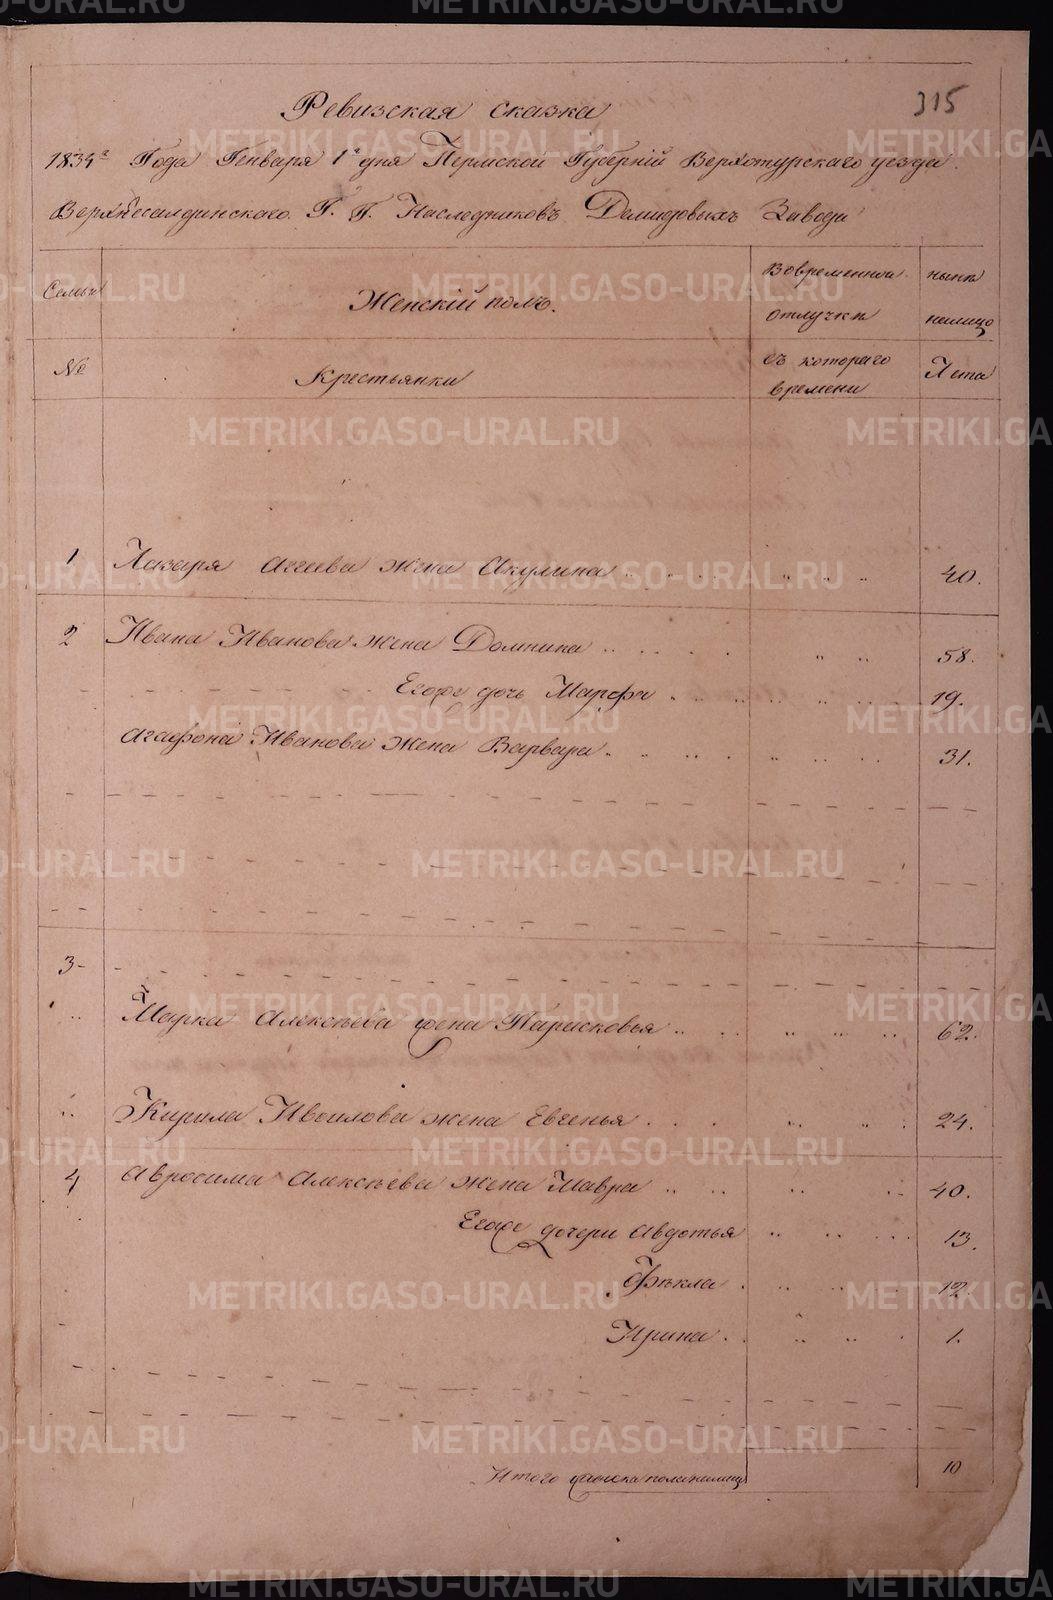 315
Ревизская сказка
1834г Года Генваря 1г дня Пермской Губерніи Верхотурскаго уезда.
Верхнесалдинскаго Г. Г. Наследниковъ Демидовыхъ Завода
Семьи
Женскій полъ.
Вовременной отлучке
ныне налицо
№
Крестьянки
съ котораго времени
Лета
1 Лазаря Агеева жена Акулина 40.
2 Ивана Иванова жена Домника 58.
Егоже дочь Марфа 19.
Агафона Иванова жена Варвара 31.
3
Марка Алексѣева жена Парасковья 62.
Кирила Ивоилова жена Евгенья 24.
4 Авросима Алексѣева жена Мавра 40.
Егоже дочери Авдотья 13.
Ѳѣкла 12.
Ирина 1.
Итого женска пола налицо 10
METRIKI.GASO-URAL.RU